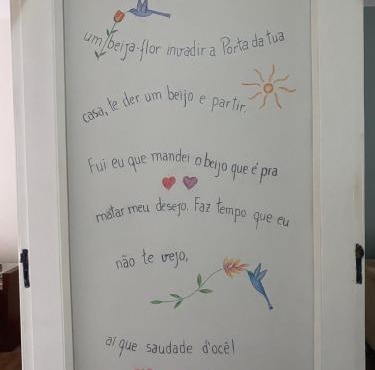 um beija-flor invadir a Porta da tua
casa, te der um beijo e partir.
Fui eu que mandei o beijo que é pra
matar meu desejo. Faz tempo que eu
não te vejo,
ai que saudade d'ocê!